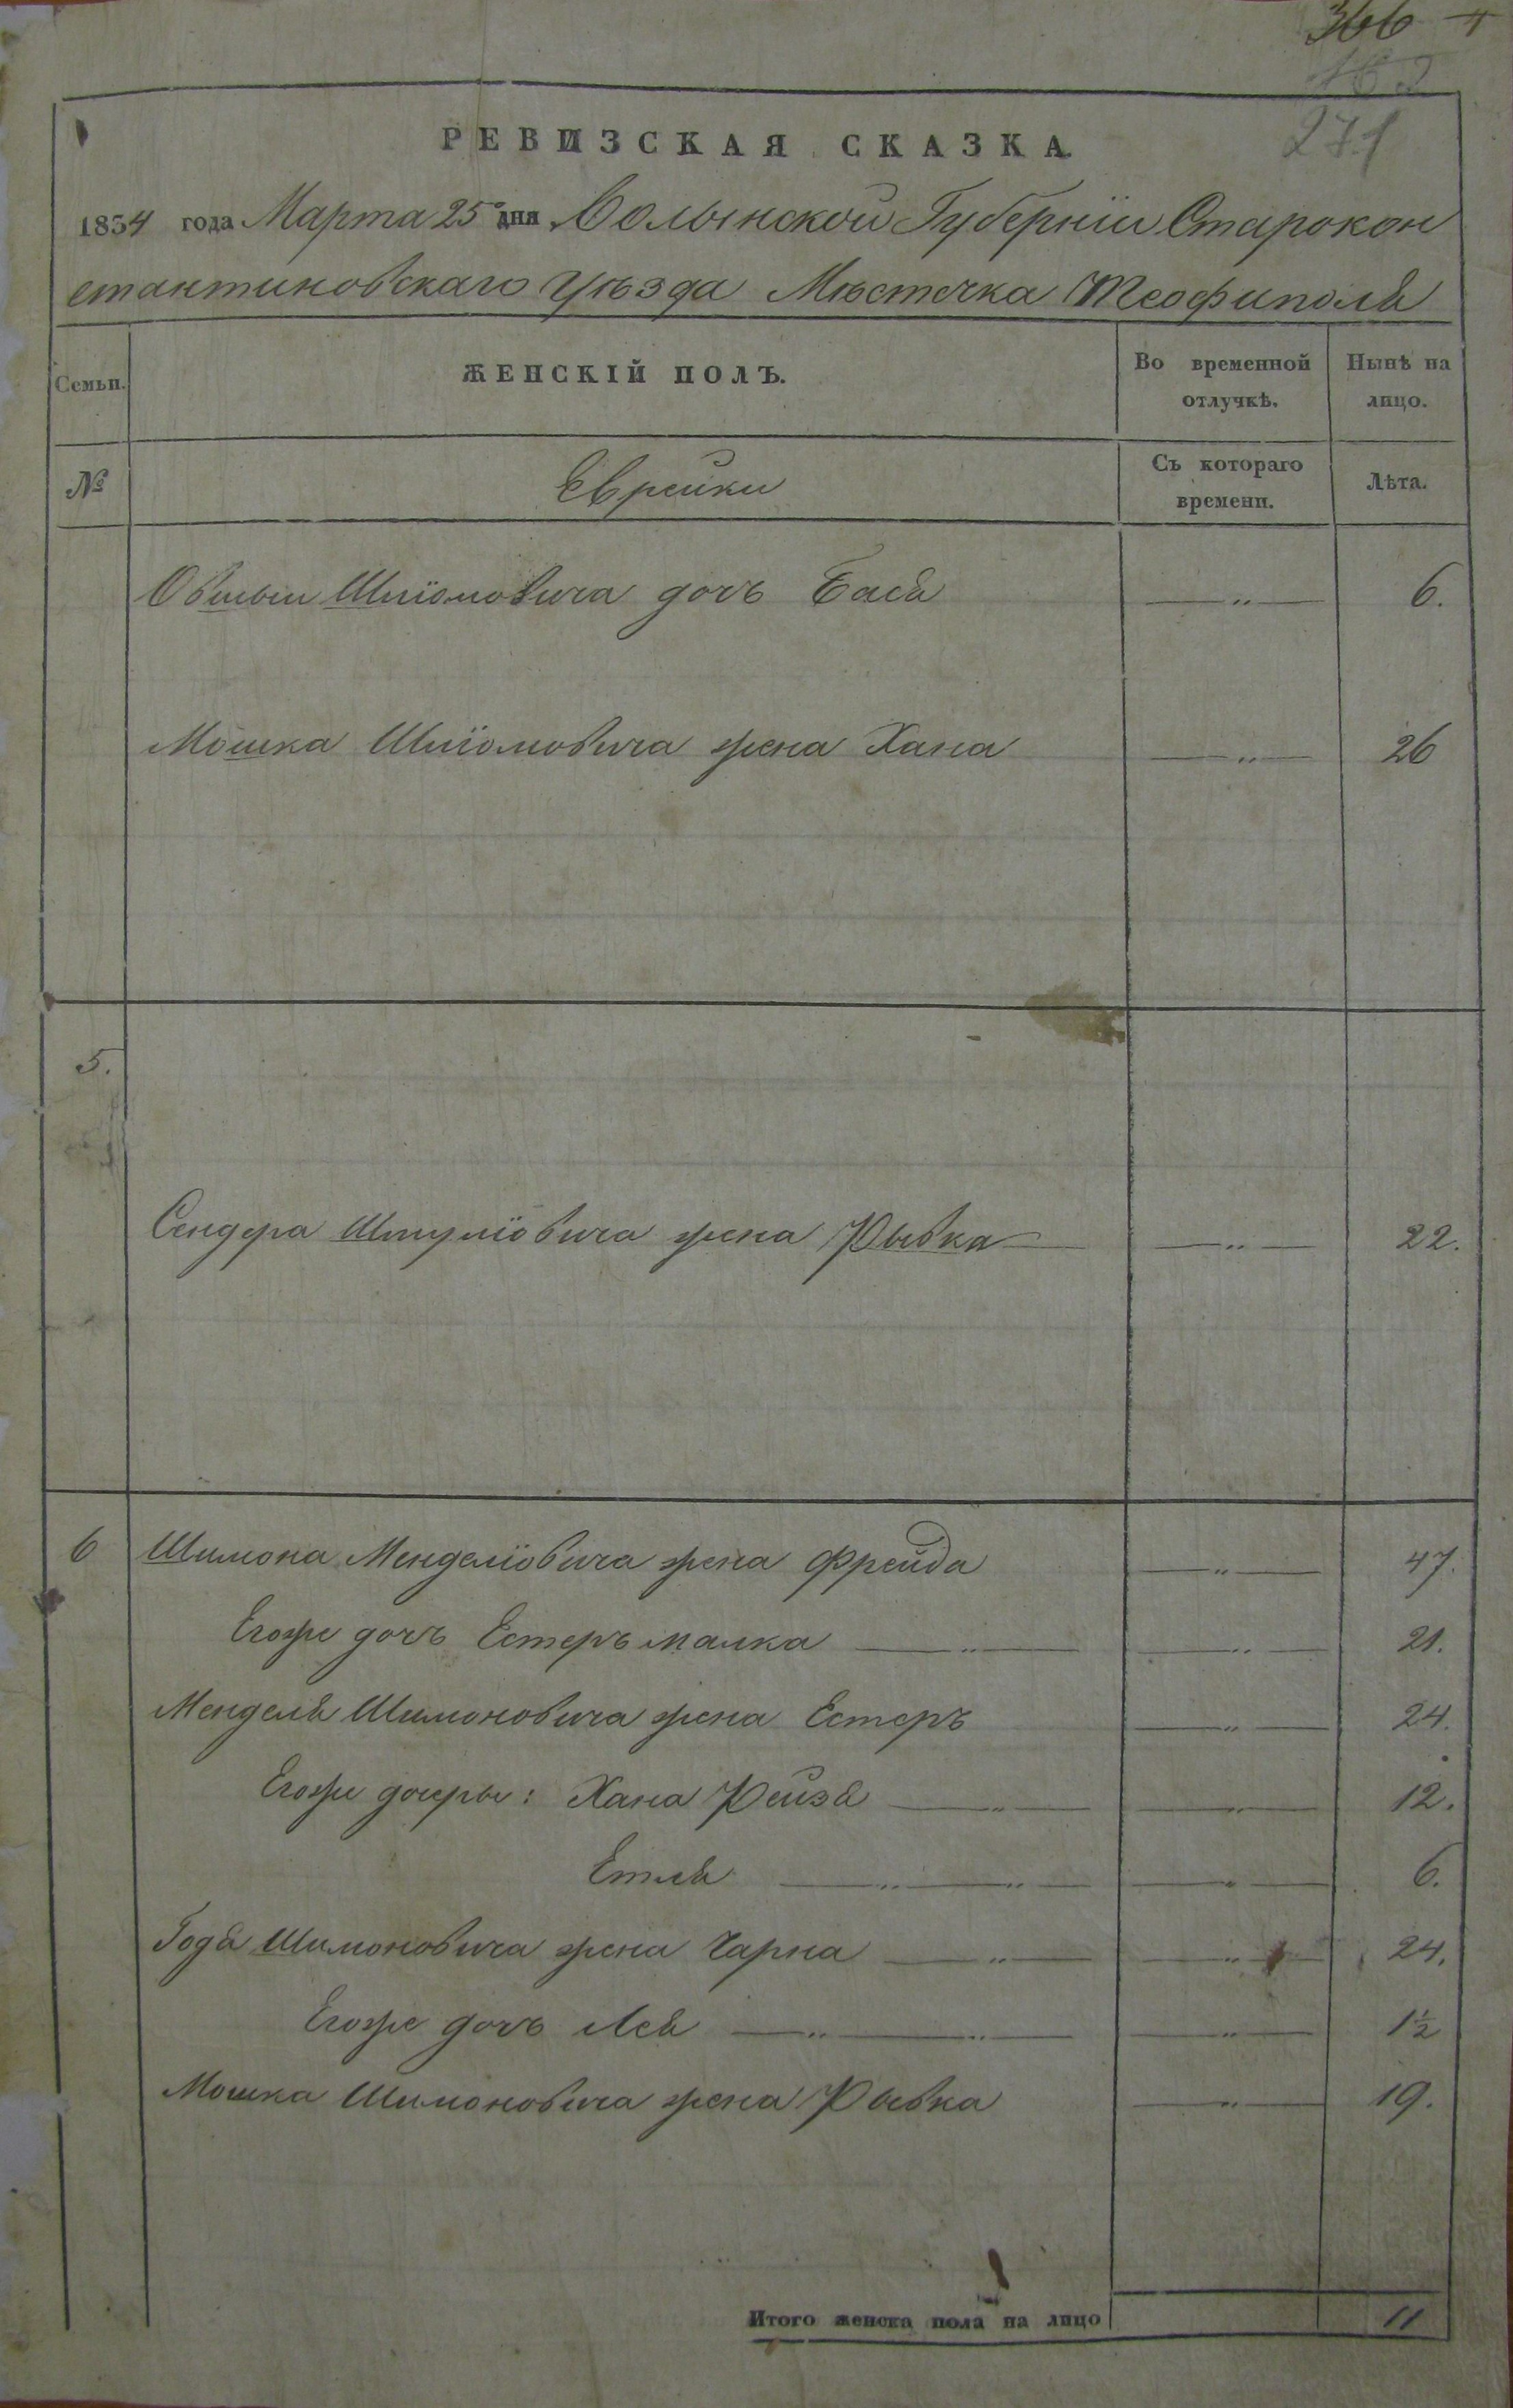 366
271
РЕВИЗСКАЯ СКАЗКА.
1854 года Марта 25 дня Волынской Губерніи Старокон
стантиновскаго Уѣзда Мѣстечка Теофиполя
Семьи. ЖЕНСКІЙ ПОЛЪ. Во временной отлучкѣ. Нынѣ на лицо.
№ Еврейки Съ котораго времени. Лѣта.
Овшыи Шліомовича дочь Бася — „ — 6.
Мошка Шліомовича жена Хана — „ — 26
5.
Сендера Шмуліовича жена Рывка — „ — 22.
6 Шимона Менделіовича жена Фрейда — „ — 47.
Егоже дочь Естеръ малка — „ — — „ — 21.
Менделя Шимоновича жена Естеръ — „ — 24.
Егоже дочеры: Хана Рейзя — „ — — „ — 12.
Етля — „ — „ — — „ — 6.
Годя Шимоновича жена Чарна — „ — — „ — 24.
Егоже дочь Лея — „ — „ — — „ — 1½
Мошка Шимоновича жена Рывка — „ — 19.
Итого женска пола на лицо 11